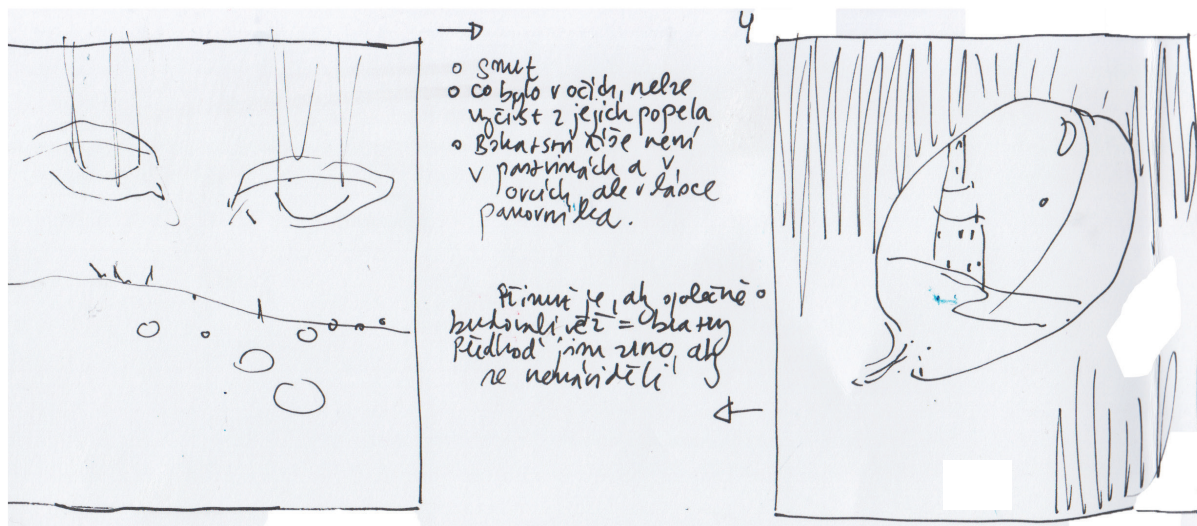 4
o Smrt
o co bylo v očích, nelze
vyčíst z jejich popela
o Bohatství říše není
v pastvinách a v
ovcích, ale v lásce
panovníka.
Přinuť je, aby společně o
budovali věž = bratry
Předhoď jim zrno, aby
se nenáviděli